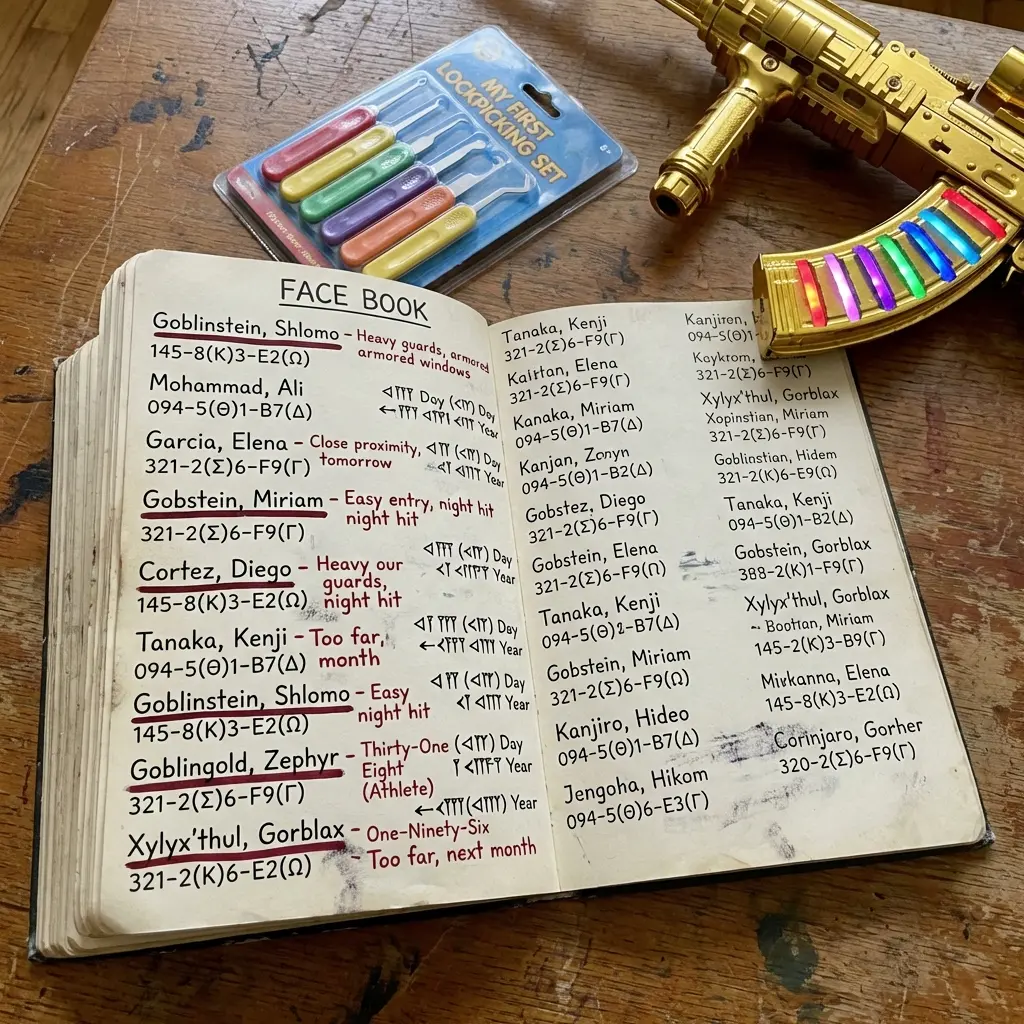 MY FIRST
LOCKPICKING SET
8+
FACE BOOK
Goblinstein, Shlomo – Heavy guards, armored
armored windows
145-8(K)3-E2(Ω)
Mohammad, Ali
094-5(Θ)1-B7(Δ)
Day
Year
Garcia, Elena – Close proximity,
tomorrow
321-2(Σ)6-F9(Γ)
Day
Year
Gobstein, Miriam – Easy entry, night hit
night hit
321-2(Σ)6-F9(Γ)
Day
Year
Cortez, Diego – Heavy our
guards,
night hit
145-8(K)3-E2(Ω)
Day
Year
Tanaka, Kenji – Too far,
month
094-5(Θ)1-B7(Δ)
Day
Year
Goblinstein, Shlomo – Easy
night hit
145-8(K)3-E2(Ω)
Day
Year
Goblingold, Zephyr – Thirty-One
Eight
(Athlete)
321-2(Σ)6-F9(Γ)
Year
Xylyx'thul, Gorblax – One-Ninety-Six
– Too far, next month
321-2(K)6-E2(Ω)
Tanaka, Kenji
321-2(Σ)6-F9(Γ)
Elena
321-2(Σ)6-F9(Γ)
Kanaka, Miriam
094-5(Θ)1-B7(Δ)
Kanjan, Zonyn
094-5(Θ)1-B2(Δ)
Gobstez, Diego
321-2(Σ)6-F9(Γ)
Gobstein, Elena
321-2(Σ)6-F9(Π)
Tanaka, Kenji
094-5(Θ)2-B7(Δ)
Gobstein, Miriam
321-2(Σ)6-F9(Ω)
Kanjiro, Hideo
094-5(Θ)1-B7(Δ)
Jengoha, Hikom
094-5(Θ)6-E3(Γ)
Kanjiren,
094-5(Θ)1-
Kaykrom,
321-2(Σ)6-F9(Γ)
Xylyx'thul, Gorblax
Xopinstian, Miriam
321-2(Σ)6-F9(Γ)
Goblinstian, Hidem
321-2(K)6-E9(Ω)
Tanaka, Kenji
094-5(Θ)1-B2(Δ)
Gobstein, Gorblax
388-2(K)1-F9(Γ)
Xylyx'thul, Gorblax
Miriam
145-2(K)3-B9(Γ)
Elena
145-8(K)3-E2(Ω)
Corinjaro, Gorher
320-2(Σ)6-F9(Γ)